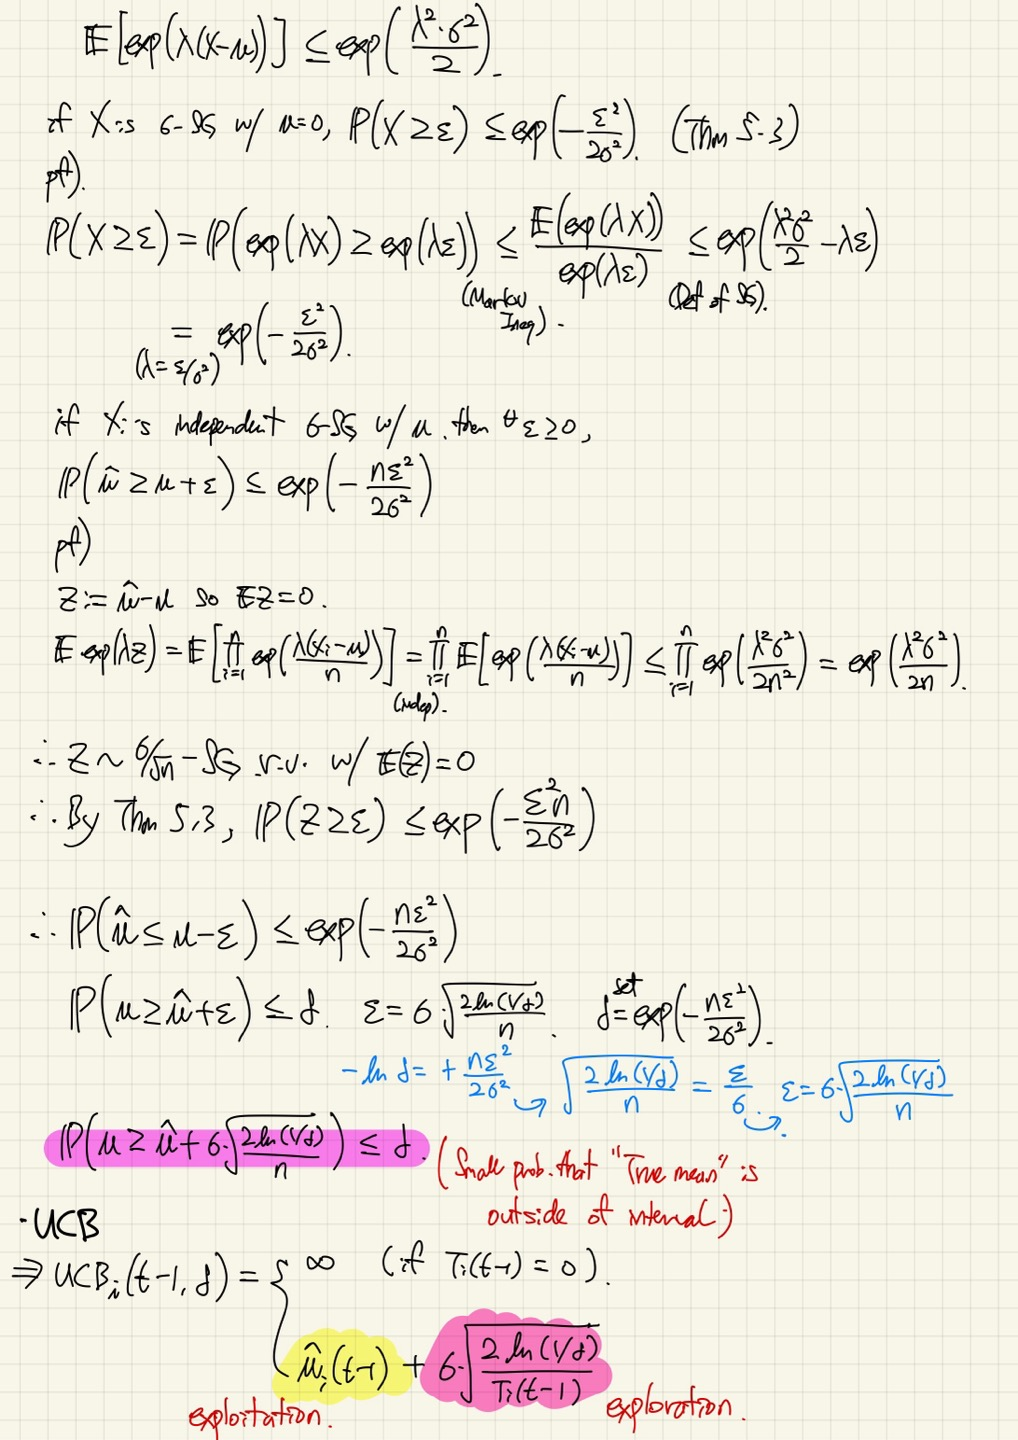 𝔼[exp(λ(X-μ))] ≤ exp(λ²·σ²/2).
if X is σ-SG w/ μ=0, ℙ(X≥ε) ≤ exp(-ε²/2σ²). (Thm 5.3)
pf).
ℙ(X≥ε) = ℙ(exp(λX) ≥ exp(λε)) ≤ 𝔼(exp(λX))/exp(λε) ≤ exp(λ²σ²/2 - λε)
(Markov Ineq). (Def of SG).
= exp(-ε²/2σ²).
(λ=ε/σ²)
if Xi is independent σ-SG w/ μ. then ∀ε≥0,
ℙ(μ̂ ≥ μ+ε) ≤ exp(-nε²/2σ²)
pf)
Z := μ̂-μ so 𝔼Z=0.
𝔼 exp(λZ) = 𝔼[∏ᵢ₌₁ⁿ exp(λ(Xi-μ)/n)] = ∏ᵢ₌₁ⁿ 𝔼[exp(λ(Xi-μ)/n)] ≤ ∏ᵢ₌₁ⁿ exp(λ²σ²/2n²) = exp(λ²σ²/2n).
(indep).
∴ Z ~ σ/√n - SG r.v. w/ 𝔼(Z)=0
∴ By Thm 5.3, ℙ(Z≥ε) ≤ exp(-ε²n/2σ²)
∴ ℙ(μ̂ ≤ μ-ε) ≤ exp(-nε²/2σ²)
ℙ(μ≥μ̂+ε) ≤ δ. ε = σ·√(2ln(1/δ)/n). δ =set exp(-nε²/2σ²).
-ln δ = + nε²/2σ² → √(2 ln(1/δ)/n) = ε/σ. → ε = σ·√(2 ln(1/δ)/n)
ℙ(μ ≥ μ̂ + σ·√(2 ln(1/δ)/n)) ≤ δ. (Small prob. that "True mean" is
outside of interval.)
·UCB
⇒ UCBᵢ(t-1, δ) = { ∞ (if Ti(t-1) = 0).
μ̂ᵢ(t-1) + σ·√(2 ln(1/δ)/Ti(t-1))
exploitation. exploration.